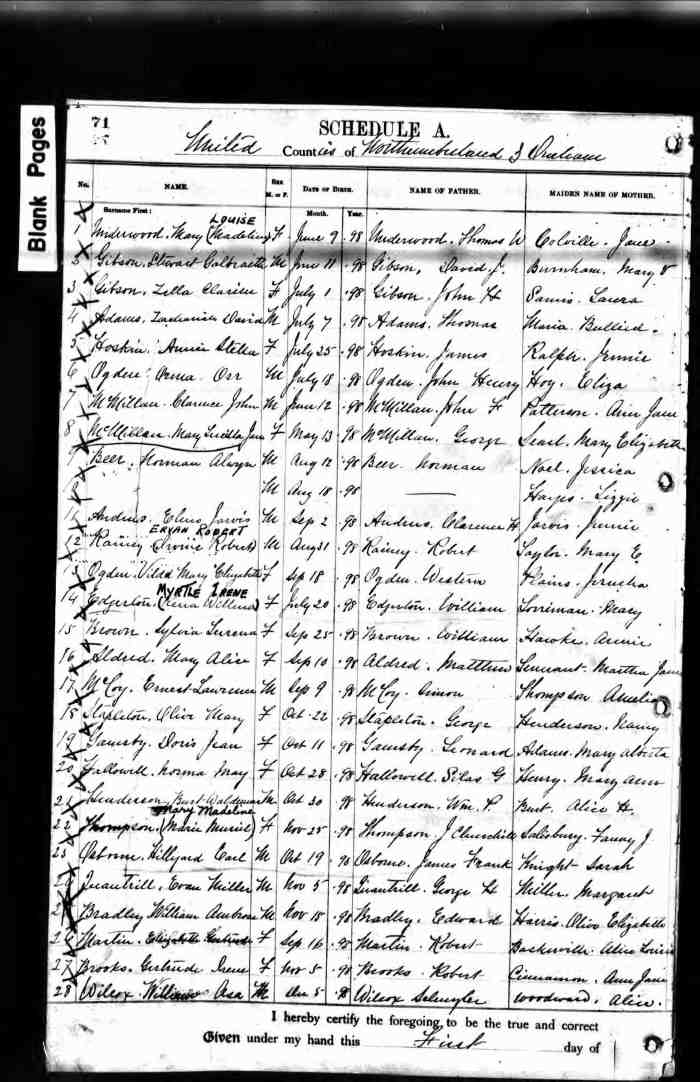 Blank Pages
71
SCHEDULE A.
United Counties of Northumberland & Durham
No. NAME. Sex M. or F. DATE OF BIRTH. NAME OF FATHER. MAIDEN NAME OF MOTHER.
Surname First: Month. Year.
LOUISE
1 Underwood. Mary (Madeline) F June 9 .98 Underwood. Thomas W Colville. Jane
2 Gibson. Stewart Galbraith M June 11 .98 Gibson, David J. Burnham. Mary
3 Gibson. Zella Clarice F July 1 .98 Gibson. John H Samis. Laura
4 Adams. Zachariah David M July 7 .98 Adams. Thomas Maria. Bullied.
5 Hoskin. Annie Stella F July 25 .98 Hoskin. James Ralph. Jennie
6 Ogden. Orma. Orr M July 18 .98 Ogden. John Henry Hoy. Eliza
7 McMillan. Clarence John M June 12 .98 McMillan. John F Patterson. Ann Jane
8 McMillan. Mary Luella Jane F May 13 .98 McMillan. George Searl. Mary Elizabeth
9 Beer. Norman Alwyn M Aug 12 .98 Beer. Norman Noel. Jessica
M Aug 18 .98 —— Lizzie
11 Andrus. Jarvis M Sep 2 .98 Andrus. Clarence H Jarvis. Jennie
ERVAN ROBERT
12 Rainey (Irvine Robert) M Aug 31 .98 Rainey. Robert Taylor. Mary E.
13 Ogden. Vilda Mary Elizabeth F Sep 18 .98 Ogden. Western Plains. Jerusha
MYRTLE IRENE
14 Edgerton. (Willena) F July 20 .98 Edgerton. William Lorriman. Mary
15 Brown. Sylvia Lurena F Sep 25 .98 Brown. William Hawke. Annie
16 Aldred. Mary Alice F Sep 10 .98 Aldred. Matthew Martha Jane
17 McCoy. Ernest Lawrence M Sep 9 .98 McCoy. Simon Thompson. Amelia
18 Stapleton. Olive Mary F Oct 22 .98 Stapleton. George Henderson. Nancy
19 Gamsby. Doris Jean F Oct 11 .98 Gamsby. Leonard Adams. Mary Alberta
20 Hallowell. Norma May F Oct 28 .98 Hallowell. Silas G Henry. Mary Ann
21 Henderson. Burt Waldemar M Oct 30 98 Henderson. Wm. P. Burt. Alice H.
Mary Madeline
22 Thompson. (Marie Muriel) F Nov 25 .98 Thompson. J Churchill Salisbury. Fanny J.
23 Osborne. Hillyard Earl M Oct 19 .98 Osborne. James Frank Knight. Sarah
24 Quantrill. Evan Miller M Nov 5 .98 Quantrill. George H Miller. Margaret
Bradley William Ambrose M Nov 15 .98 Bradley. Edward Harris. Olive Elizabeth
26 Martin. Elizabeth Gertrude F Sep 16 .98 Martin. Robert Alice Louise
27 Brooks. Gertrude Irene F Nov 5 .98 Brooks. Robert Cinnamon. Ann Jane
28 Wilcox. William Asa M Dec 5 .98 Wilcox Schuyler Woodward. Alice.
I hereby certify the foregoing, to be the true and correct
Given under my hand this First day of